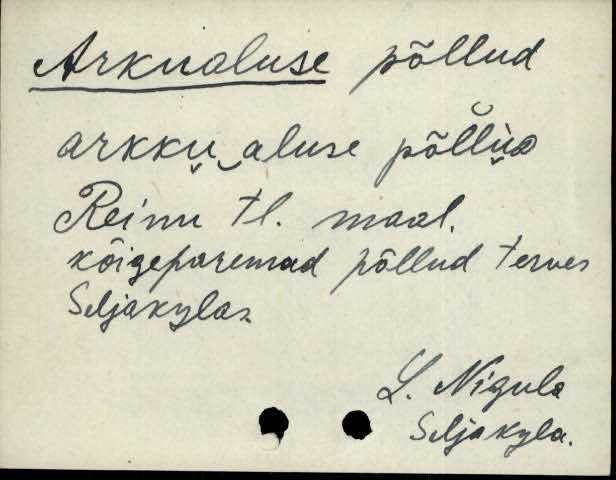 Arkualuse põllud
arkku‿aluse põllud
Reinu tl. maal.
kõigeparemad põllud terves
Seljakylas
L. Nigula
Seljakyla.